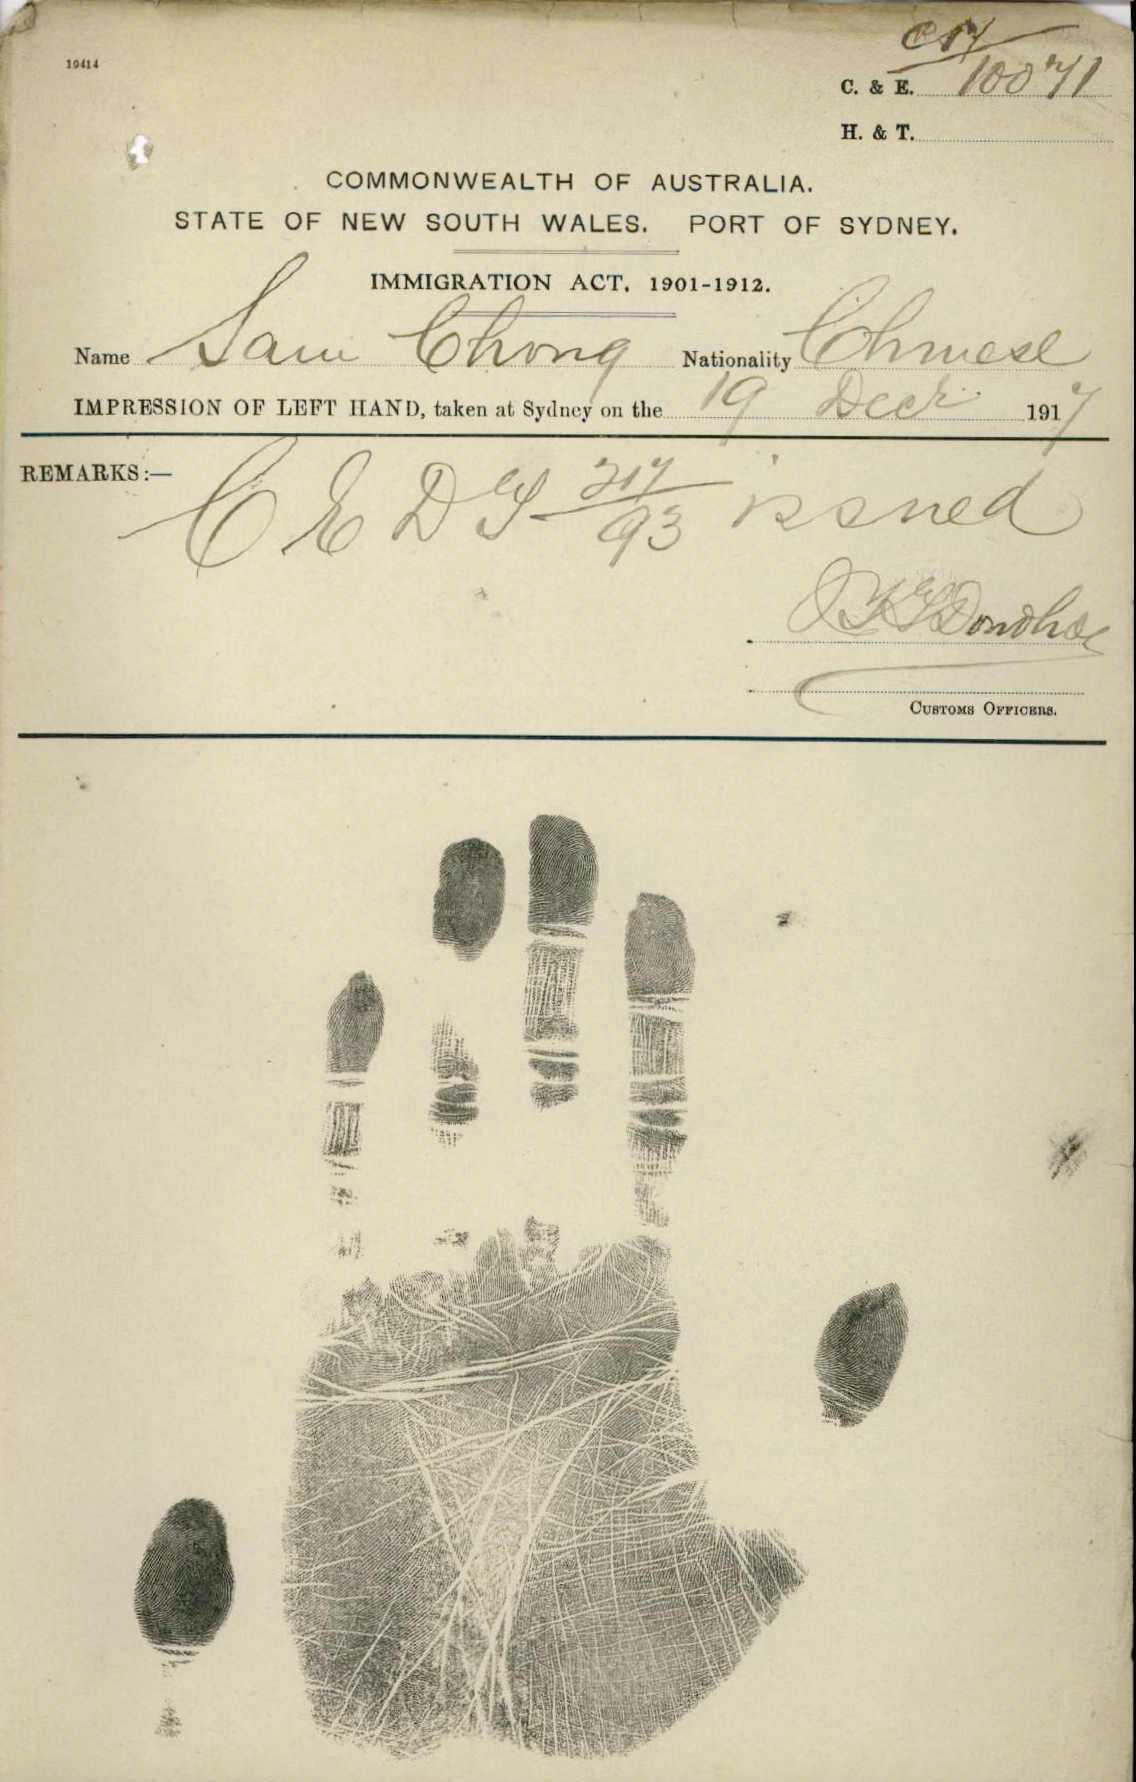 19414
C17
C. & E. 10071
H. & T.
COMMONWEALTH OF AUSTRALIA.
STATE OF NEW SOUTH WALES. PORT OF SYDNEY.
IMMIGRATION ACT, 1901-1912.
Name Sam Chong Nationality Chinese
IMPRESSION OF LEFT HAND, taken at Sydney on the 19 Decr 1917
REMARKS:— C E D T 217/93 issued
Donohoe
CUSTOMS OFFICERS.